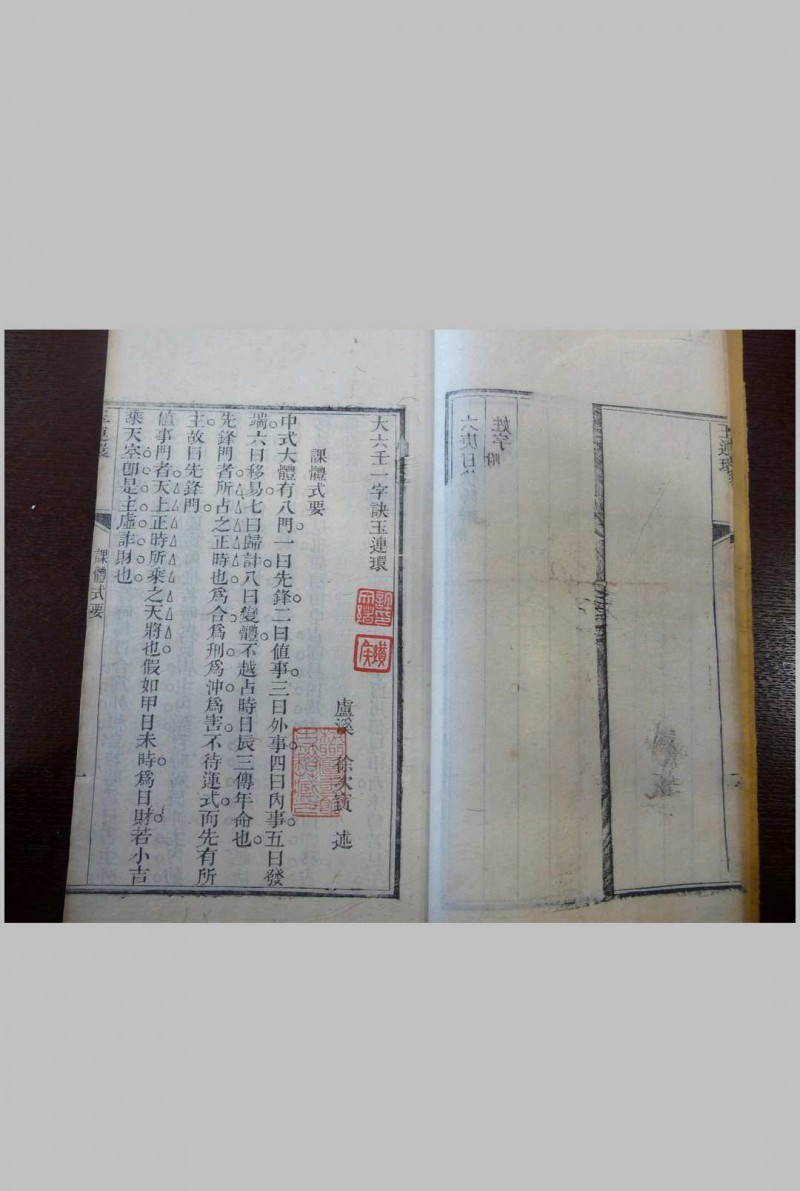 玉連環
姓字附
六庚日
大六壬一字訣玉連環
盧溪 徐次賓 述
課體式要
中式大體有八門一曰先鋒二曰値事三曰外事四曰內事五曰發
端六曰移易七曰歸計八曰變體不越占時日辰三傳年命也
先鋒門者所占之正時也爲合爲刑爲沖爲害不待運式而先有所
主故曰先鋒門
値事門者天上正時所乘之天將也假如甲日未時爲日財若小吉
乘天空卽是主虛詐財也
玉連環
課體式要
一